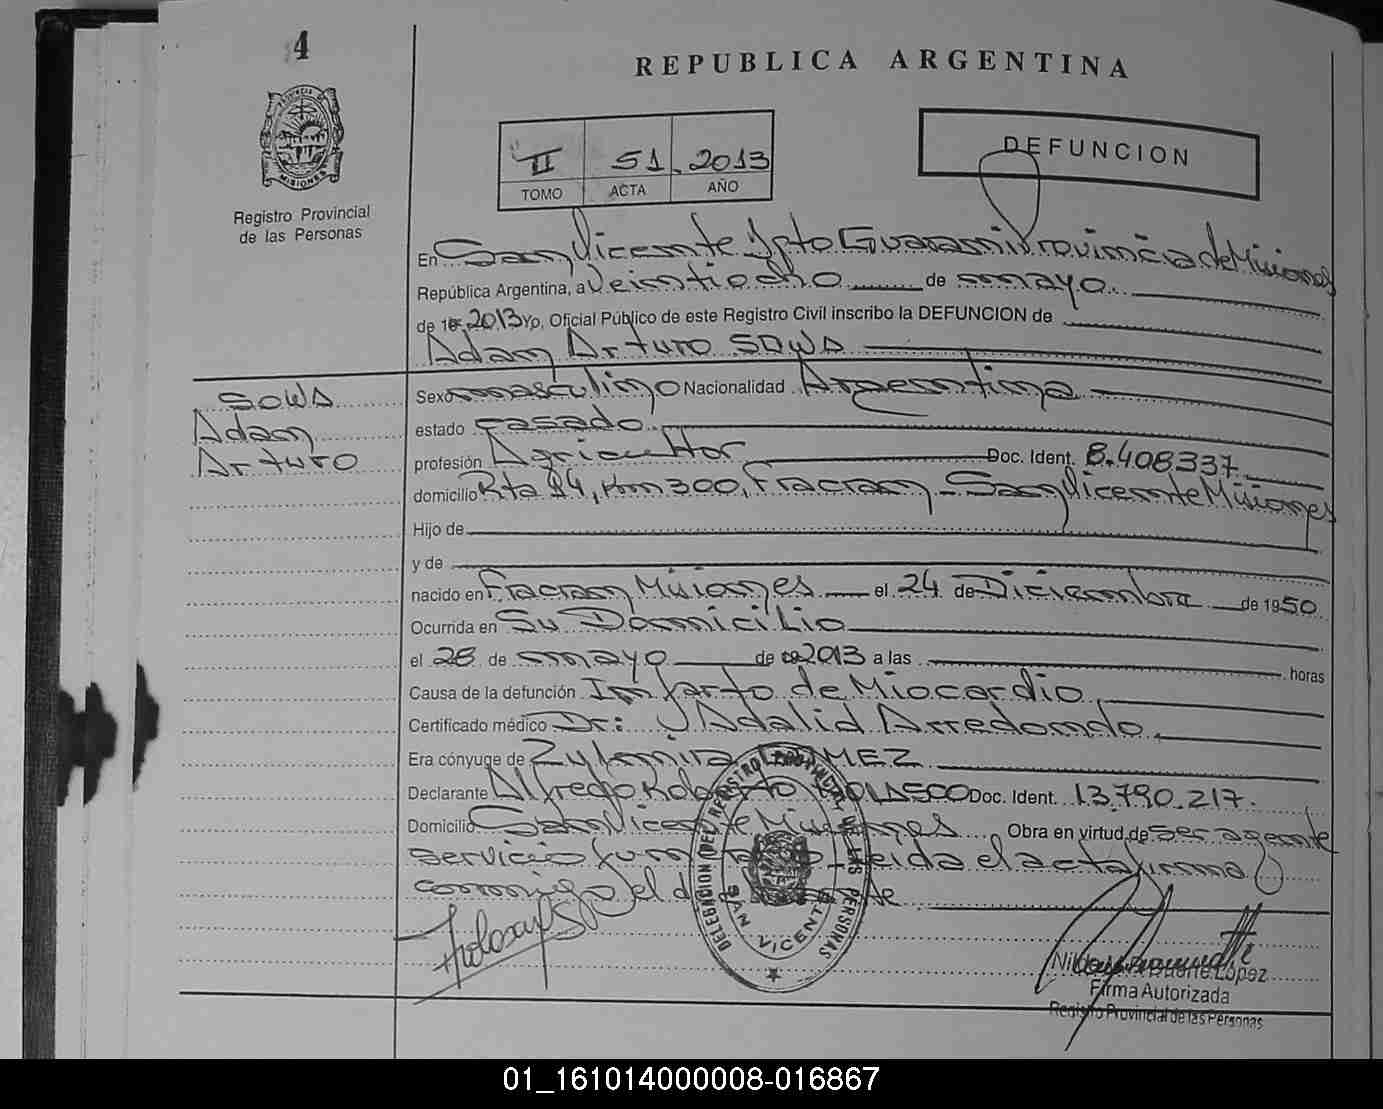 4
REPUBLICA ARGENTINA
PROVINCIA DE
MISIONES
Registro Provincial
de las Personas
II 51 2013
TOMO ACTA AÑO
DEFUNCION
En San Vicente Dpto Guarani Provincia de Misiones
República Argentina, a Veintiocho de mayo
de 19 2013 Yo, Oficial Público de este Registro Civil inscribo la DEFUNCION de
Adan Arturo SOWA
SOWA
Adan
Arturo
Sexo masculino Nacionalidad Argentina
estado casado
profesión Agricultor Doc. Ident. 8.408337
domicilio Rta 14, Km 300, Fracran - San Vicente Misiones
Hijo de
y de
nacido en Fracran Misiones el 24 de Diciembre de 1950
Ocurrida en Su Domicilio
el 28 de mayo de 2013 a las horas
Causa de la defunción Infarto de Miocardio
Certificado médico Dr: Adalid Arredondo
Era cónyuge de Zulmira GOMEZ
Declarante Alfredo Roberto Doc. Ident. 13.790.217.
Domicilio San Vicente Misiones Obra en virtud de ser agente
servicio funerario Leida el acta firma
conmigo el declarante
DELEGACION DEL REGISTRO PROVINCIAL DE LAS PERSONAS
SAN VICENTE
López
Firma Autorizada
Registro Provincial de las Personas
01_161014000008-016867